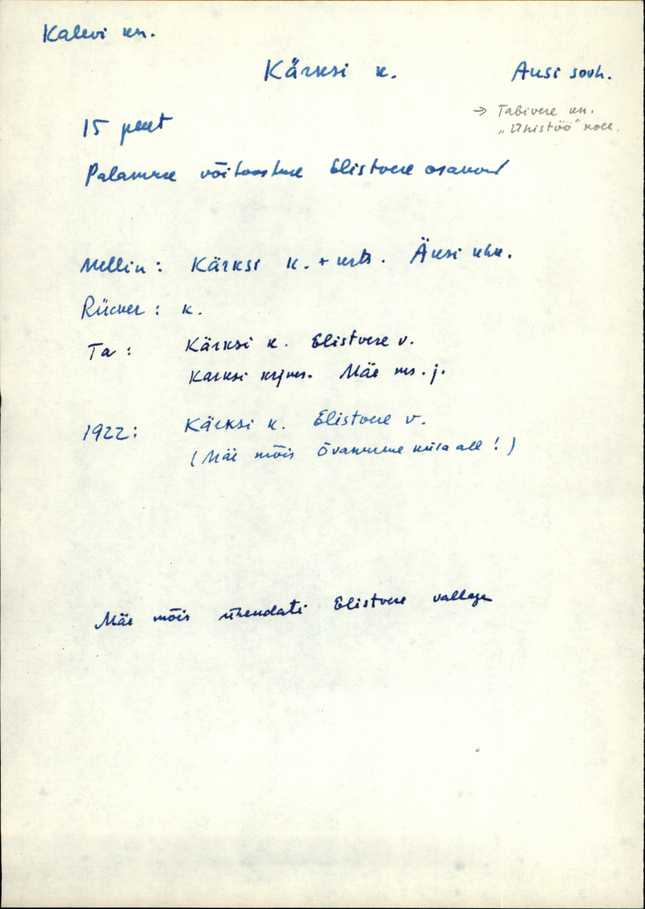 Kalevi kn.
Kärksi k. Äksi sovh.
→ Tabivere kn.
"Ühistöö" kolh.
15 peret
Palamuse võitööstuse Elistvere osakond
Mellin: Kärksi k. + krts. Äksi khk.
Rücker: k.
Ta: Kärksi k. Elistvere v.
Karksi krjms. Mäe ms. j.
1922: Kärksi k. Elistvere v.
(Mäe mõis Õvanurme küla all!)
Mäe mõis ühendati Elistvere vallaga